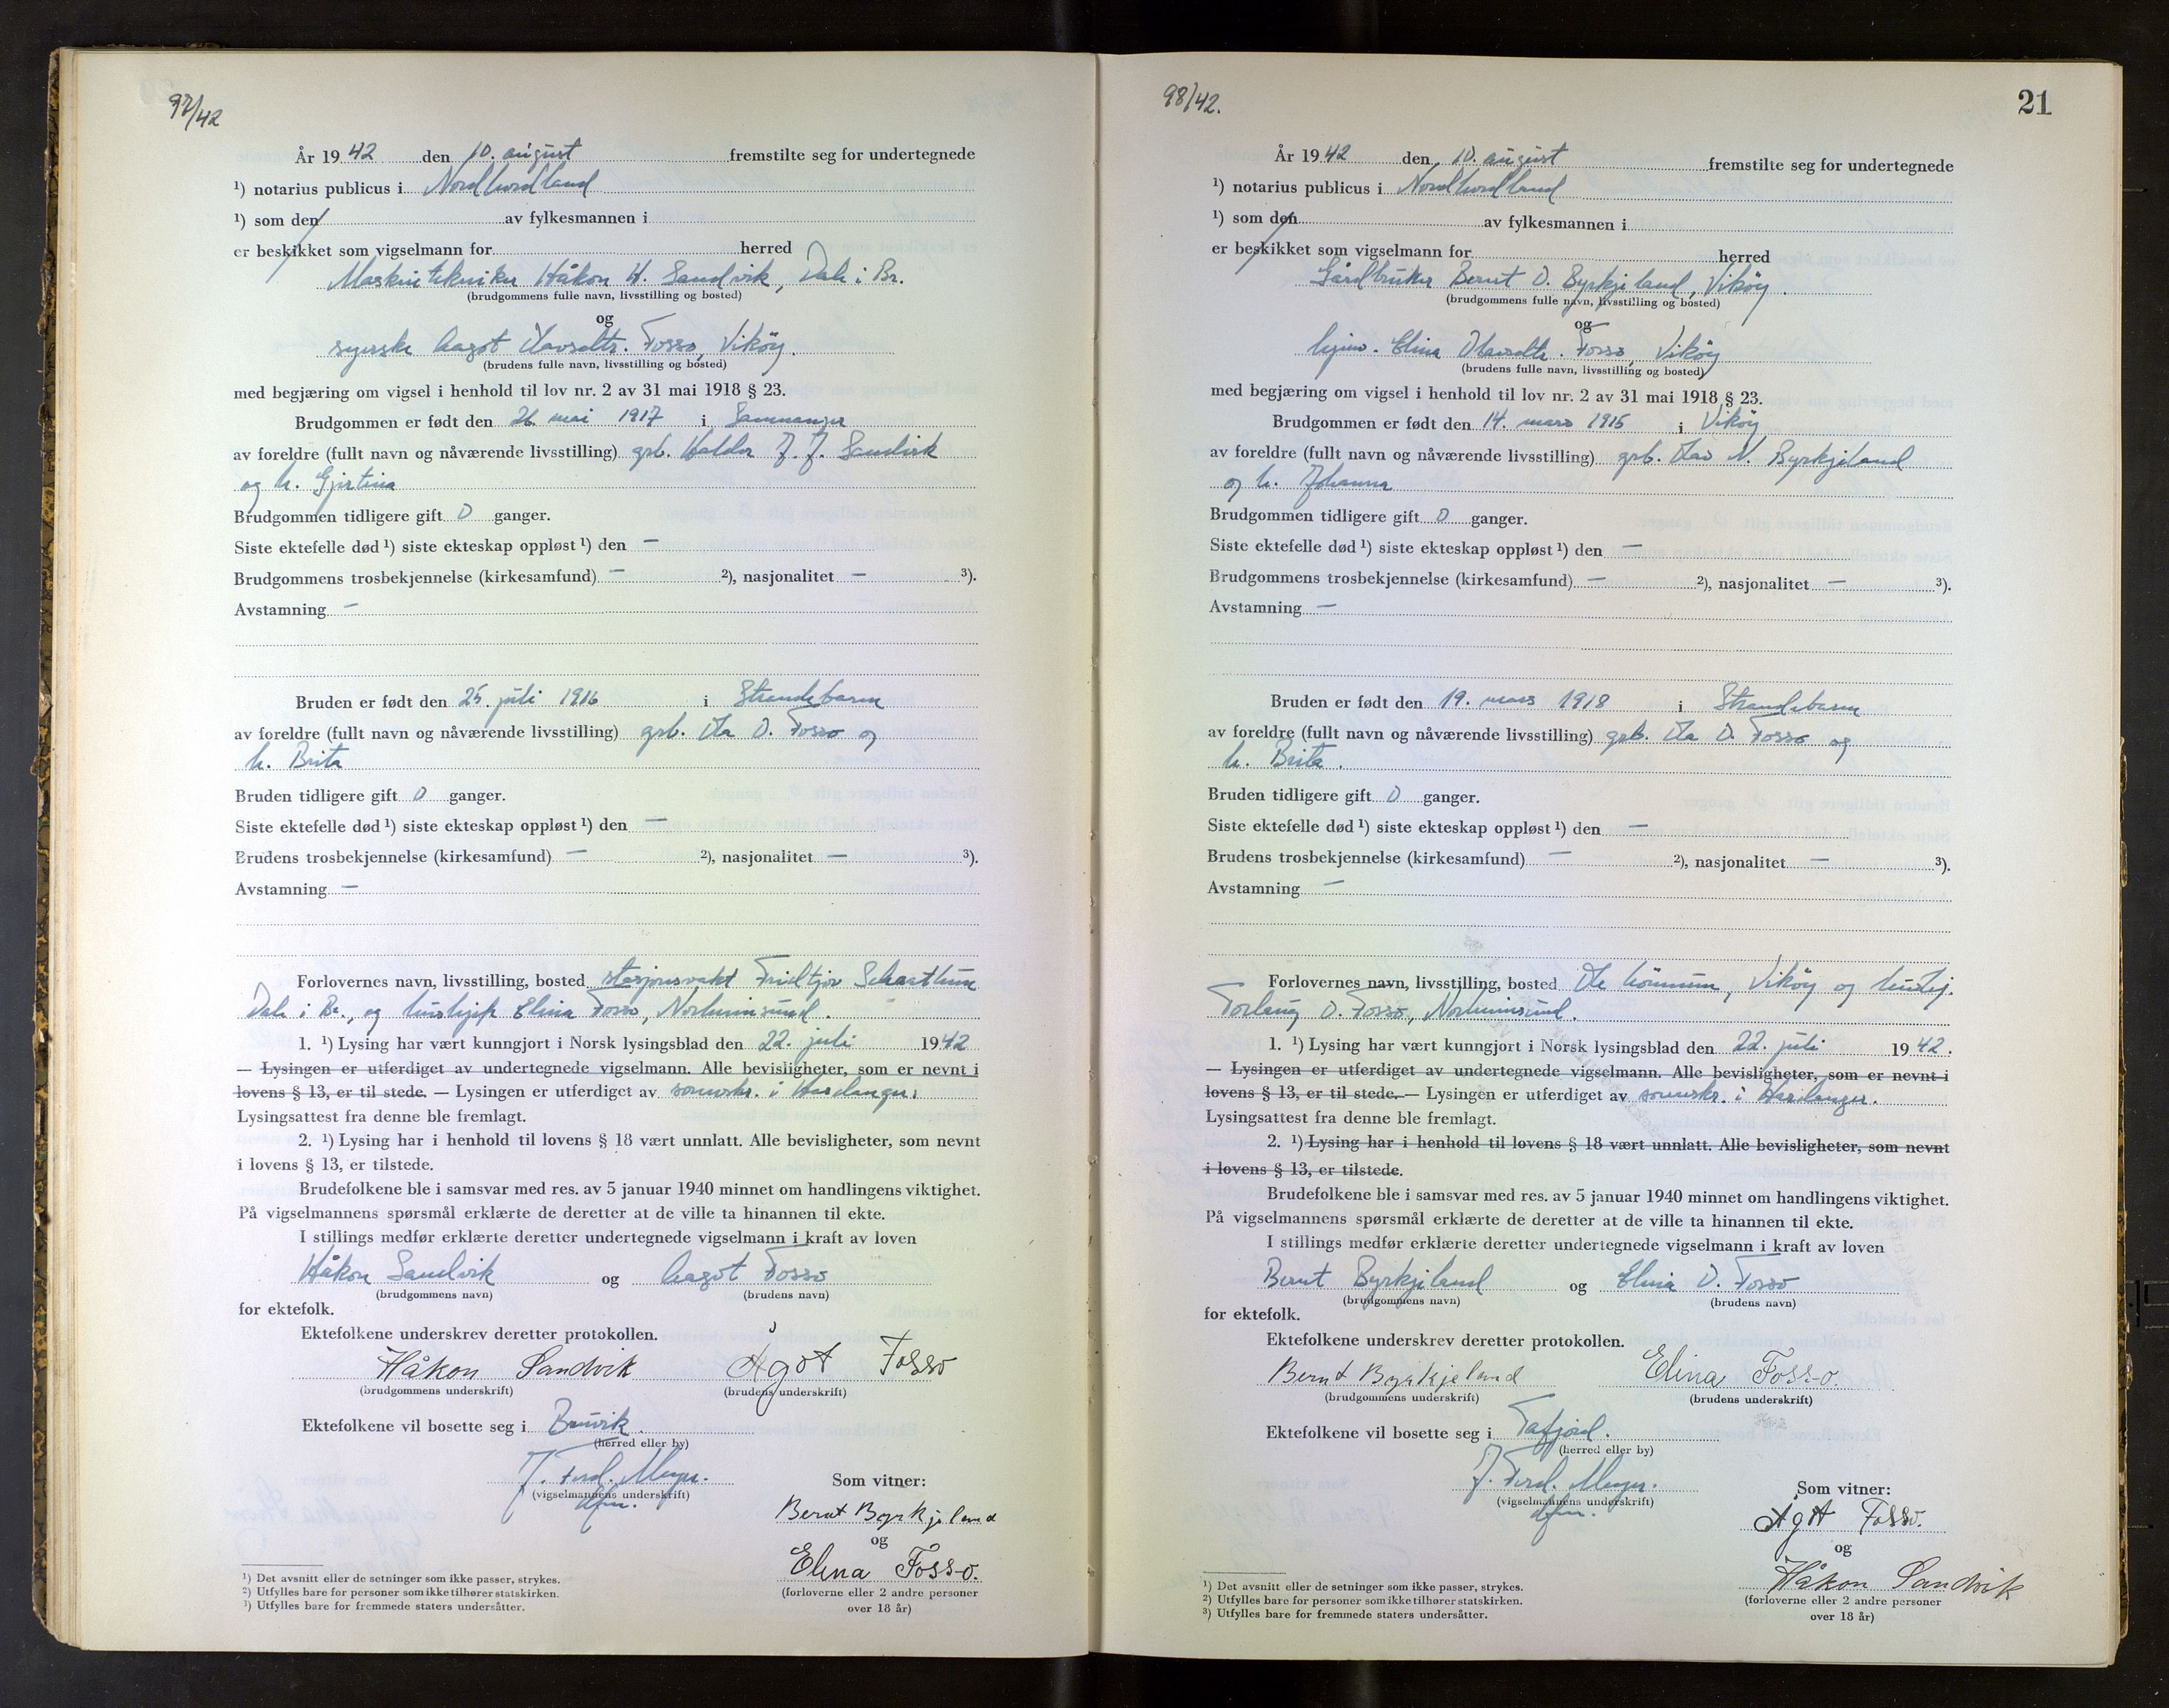 97/42
År 1942 den 10. august fremstilte seg for undertegnede
¹) notarius publicus i Nordhordland
¹) som den av fylkesmannen i
er beskikket som vigselmann for herred
Maskintekniker Håkon H. Sandvik, Dale i Br.
(brudgommens fulle navn, livsstilling og bosted)
og
syerske Aagot Olavsdtr. Fosso, Viköy.
(brudens fulle navn, livsstilling og bosted)
med begjæring om vigsel i henhold til lov nr. 2 av 31 mai 1918 § 23.
Brudgommen er født den 26. mai 1917 i Samnanger
av foreldre (fullt navn og nåværende livsstilling) grb. Haldor J. J. Sandvik
og h. Gjertina
Brudgommen tidligere gift 0 ganger.
Siste ektefelle død ¹) siste ekteskap oppløst ¹) den —
Brudgommens trosbekjennelse (kirkesamfund) — ²), nasjonalitet — ³).
Avstamning —
Bruden er født den 25. juli 1916 i Strandebarm
av foreldre (fullt navn og nåværende livsstilling) grb. Ola O. Fosso og
h. Brita
Bruden tidligere gift 0 ganger.
Siste ektefelle død ¹) siste ekteskap oppløst ¹) den —
Brudens trosbekjennelse (kirkesamfund) — ²), nasjonalitet — ³).
Avstamning —
Forlovernes navn, livsstilling, bosted stasjonsvakt Fridtjov Schartum
Dale i Br., og hushjelp Elina Fosso, Norheimsund.
1. ¹) Lysing har vært kunngjort i Norsk lysingsblad den 22. juli 1942
— Lysingen er utferdiget av undertegnede vigselmann. Alle bevisligheter, som er nevnt i
lovens § 13, er til stede. — Lysingen er utferdiget av sorenskr. i Hardanger.
Lysingsattest fra denne ble fremlagt.
2. ¹) Lysing har i henhold til lovens § 18 vært unnlatt. Alle bevisligheter, som nevnt
i lovens § 13, er tilstede.
Brudefolkene ble i samsvar med res. av 5 januar 1940 minnet om handlingens viktighet.
På vigselmannens spørsmål erklærte de deretter at de ville ta hinannen til ekte.
I stillings medfør erklærte deretter undertegnede vigselmann i kraft av loven
Håkon Sandvik og Aagot Fosso
(brudgommens navn) (brudens navn)
for ektefolk.
Ektefolkene underskrev deretter protokollen.
Håkon Sandvik Ågot Fosso
(brudgommens underskrift) (brudens underskrift)
Ektefolkene vil bosette seg i Bruvik.
(herred eller by)
J. Ferd. Meyer.
(vigselmannens underskrift)
Som vitner:
Bernt Byrkjeland
og
Elina Fosso.
(forloverne eller 2 andre personer
over 18 år)
¹) Det avsnitt eller de setninger som ikke passer, strykes.
²) Utfylles bare for personer som ikke tilhører statskirken.
³) Utfylles bare for fremmede staters undersåtter.
98/42.
21
År 1942 den 10. august fremstilte seg for undertegnede
¹) notarius publicus i Nordhordland
¹) som den av fylkesmannen i
er beskikket som vigselmann for herred
Gårdbruker Bernt O. Byrkjeland, Viköy.
(brudgommens fulle navn, livsstilling og bosted)
og
Elina Olavsdtr. Fosso, Viköy
(brudens fulle navn, livsstilling og bosted)
med begjæring om vigsel i henhold til lov nr. 2 av 31 mai 1918 § 23.
Brudgommen er født den 14. mars 1915 i Viköy
av foreldre (fullt navn og nåværende livsstilling) grb. Olav N. Byrkjeland
og h. Johanna
Brudgommen tidligere gift 0 ganger.
Siste ektefelle død ¹) siste ekteskap oppløst ¹) den —
Brudgommens trosbekjennelse (kirkesamfund) — ²), nasjonalitet — ³).
Avstamning —
Bruden er født den 19. mars 1918 i Strandebarm
av foreldre (fullt navn og nåværende livsstilling) grb. Ola O. Fosso og
h. Brita.
Bruden tidligere gift 0 ganger.
Siste ektefelle død ¹) siste ekteskap oppløst ¹) den —
Brudens trosbekjennelse (kirkesamfund) — ²), nasjonalitet — ³).
Avstamning —
Forlovernes navn, livsstilling, bosted Viköy og
O. Fosso, Norheimsund.
1. ¹) Lysing har vært kunngjort i Norsk lysingsblad den 22. juli 1942.
— Lysingen er utferdiget av undertegnede vigselmann. Alle bevisligheter, som er nevnt i
lovens § 13, er til stede. — Lysingen er utferdiget av sorenskr. i Hardanger.
Lysingsattest fra denne ble fremlagt.
2. ¹) Lysing har i henhold til lovens § 18 vært unnlatt. Alle bevisligheter, som nevnt
i lovens § 13, er tilstede.
Brudefolkene ble i samsvar med res. av 5 januar 1940 minnet om handlingens viktighet.
På vigselmannens spørsmål erklærte de deretter at de ville ta hinannen til ekte.
I stillings medfør erklærte deretter undertegnede vigselmann i kraft av loven
Bernt Byrkjeland og Elina O. Fosso
(brudgommens navn) (brudens navn)
for ektefolk.
Ektefolkene underskrev deretter protokollen.
Bernt Byrkjeland Elina Fosso.
(brudgommens underskrift) (brudens underskrift)
Ektefolkene vil bosette seg i Tafjord.
(herred eller by)
J. Ferd. Meyer.
(vigselmannens underskrift)
Som vitner:
Ågot Fosso.
og
Håkon Sandvik
(forloverne eller 2 andre personer
over 18 år)
¹) Det avsnitt eller de setninger som ikke passer, strykes.
²) Utfylles bare for personer som ikke tilhører statskirken.
³) Utfylles bare for fremmede staters undersåtter.